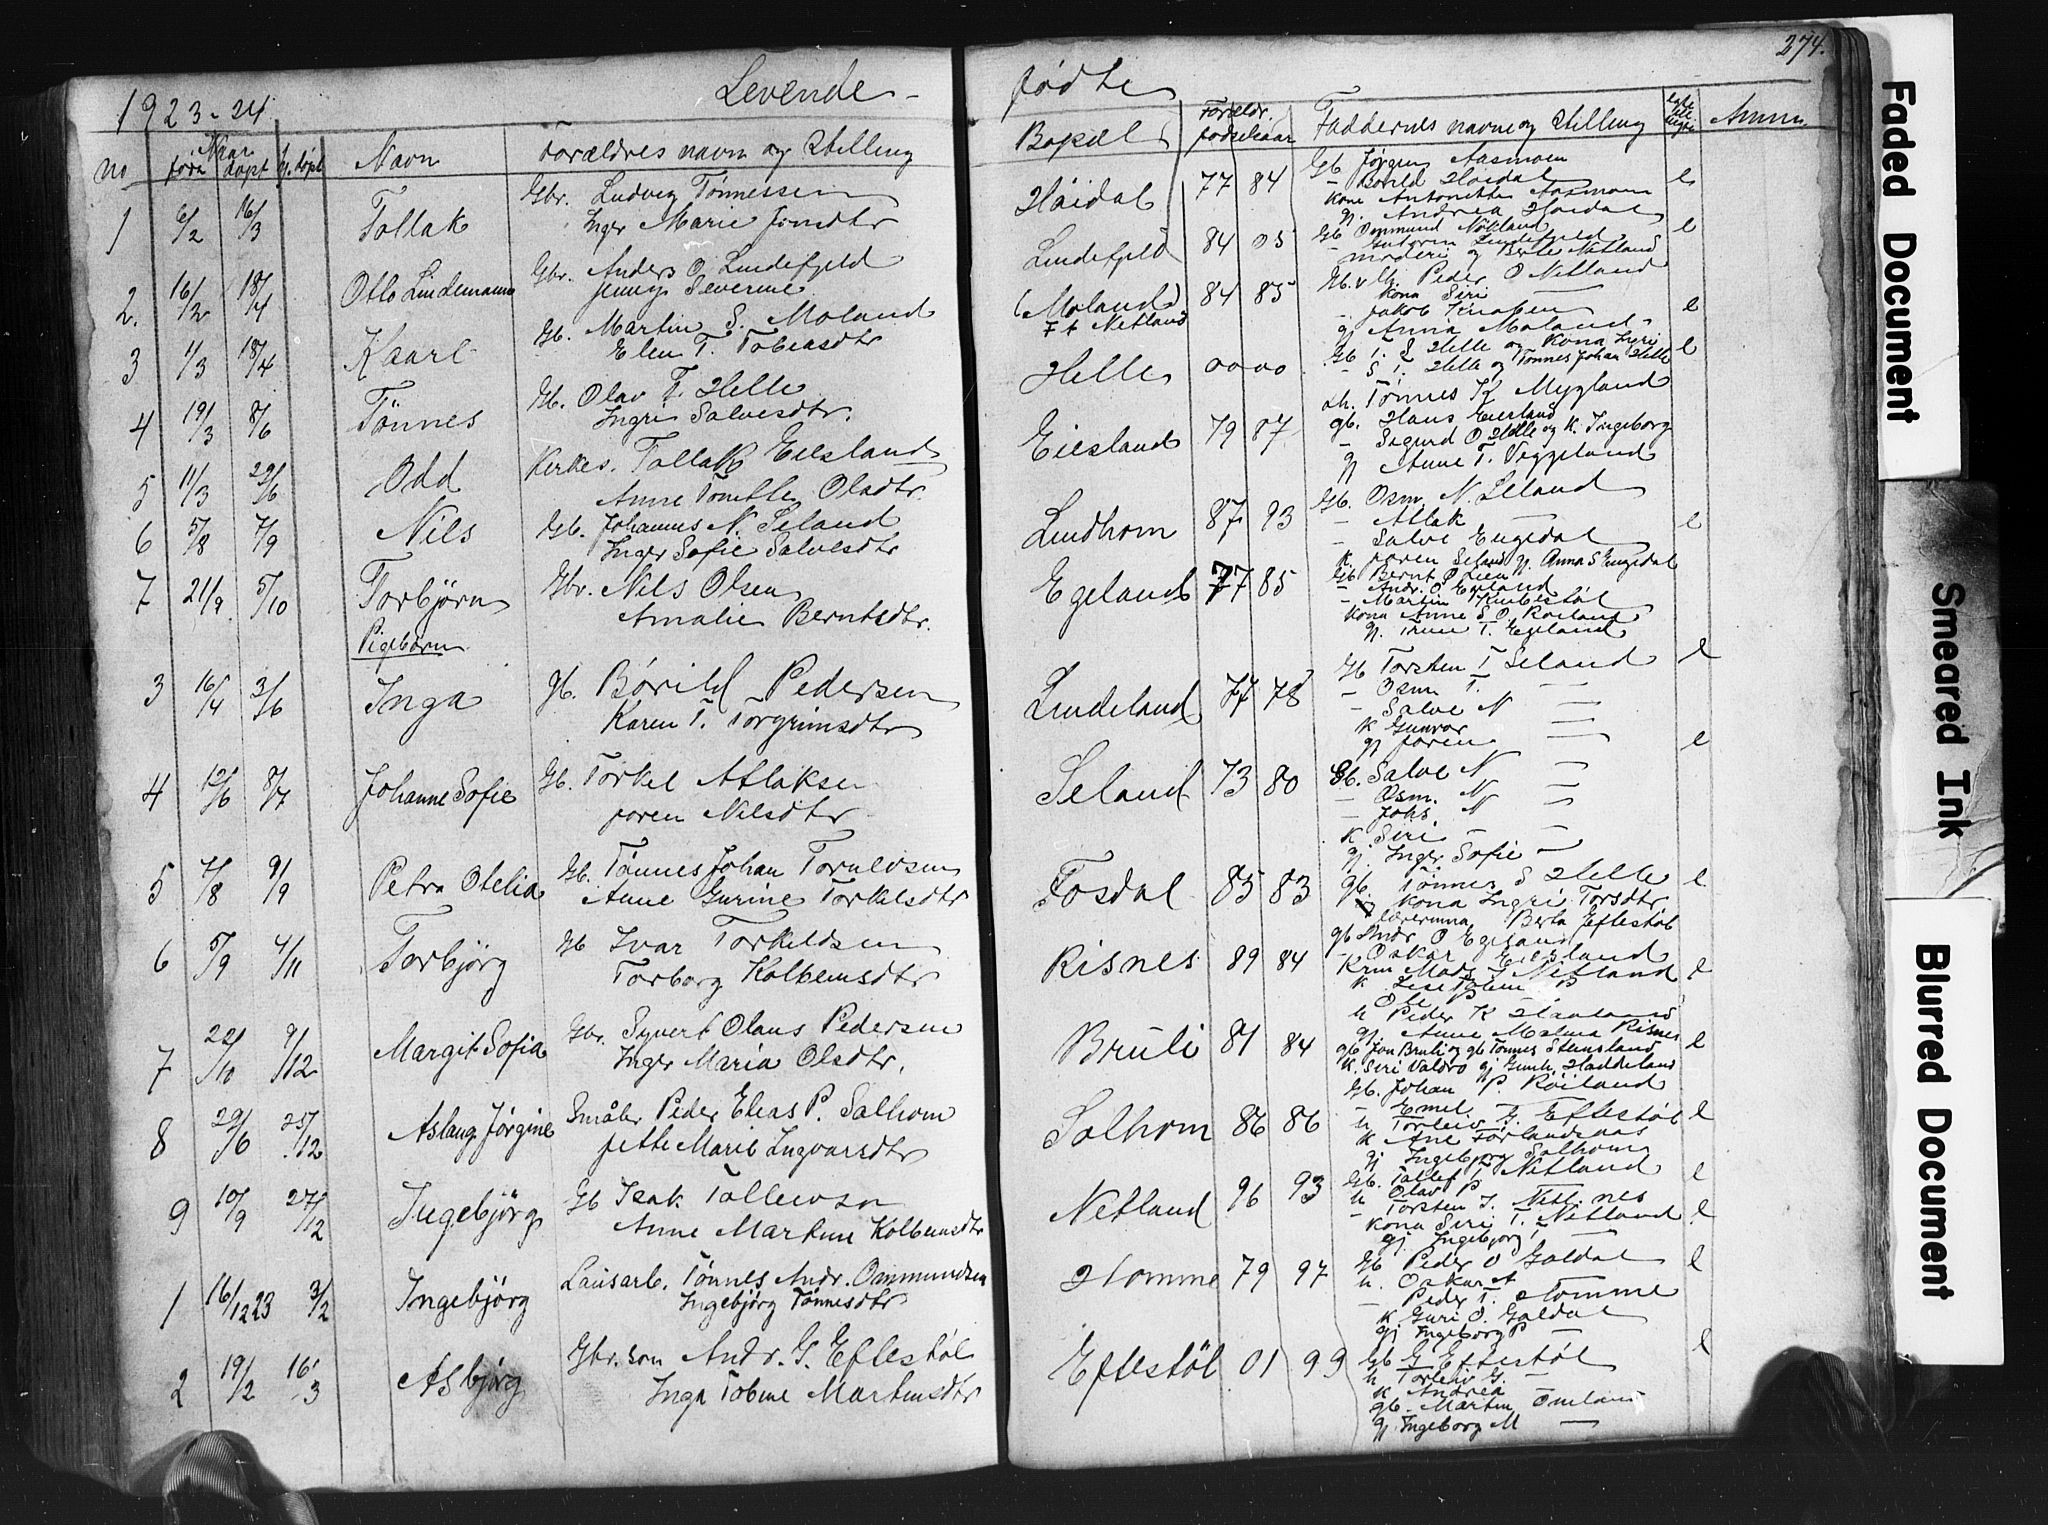 274.
1923-24
Levende
fødte
no
Naar
født
døpt
Navn
Forældres navn og Stilling
Bopæl
Forældr. fødselsaar
Faddernes navn og Stilling
Anm.
1 6/2 16/3 Tollak Gbr. Ludvig Tønnessen
Inger Marie Jonsdtr
Höidal 77 84 Gb. Jörgen Aasmoen
- Børild Höidal e
Kone Antonette Aasmoen
gj. Andrea Höidal
2. 16/2 18/4 Otto Lindemann Gbr. Anders O. Lindefjeld
Jenny Severine
Lindefjeld 84 05 Gb Ommund Netland e
- Guttorm Lindefjeld
moderen og Berte Netland
3 1/3 18/4 Kaare Gb. Martin S. Moland
Elen T. Tobiasdtr
(Moland) 84 85 Gb. v Gb. Peder O Netland
F. t. Netland
Kona Siri —
- Jakob Knaben e
gj Anna Moland
4 19/3 8/6 Tønnes Gb. Olav T. Helle
Ingri Salvesdtr.
Helle 00 00 Gb T. S Helle og Kona Siri e
- S T. Helle og Tønnes Johan Helle
5 11/3 22/6 Odd Kirkes. Tollak Eiesland
Anne Tonette Olsdtr.
Eiesland 79 87 Lh. Tønnes K Mygland
gb. Hans Eiesland
- Sigurd O Helle og K. Ingeborg
gj Anne T. Veggeland
6 5/8 7/9 Nils Gb. Johannes N. Seland
Inger Sofie Salvesdtr
Lindhom 87 93 Gb. Osm. N. Seland
- Atlak —
- Salve Eugedal e
k. Joren Seland gj. Anna S Eugedal
7 21/9 5/10 Torbjörn Gbr. Nils Olsen
Amalie Berntsdtr.
Egeland 77 85 Gb Bernt O Lien
- Andr. O Egeland
- Martin Knibestöl
Kona Anne S. O. Roiland
gj. Trine T. Egeland
Pigebörn
3 16/4 3/6 Inga gb. Børild Pedersen
Karen T. Torgrimsdtr
Lindeland 77 78 Gb Torsten T Seland e
- Osm T. —
- Salve N —
k Gunvor —
gj Joren —
4 12/6 8/7 Johanne Sofie Gb. Torkel Atlaksen
Joren Nilsdtr
Seland 73 80 Gb. Salve N — e
- Osm. N —
- Johs. N —
k. Siri —
gj. Inger Sofie —
5 7/8 9/9 Petra Otelia Gb. Tønnes Johan Tormodsen
Anne Gurine Torkelsdtr
Fosdal 85 83 gb. Tønnes S Helle e
Kona Ingri Torsdtr
Lærerinna Berta Eftestöl
gb Andr O Egeland
6 5/9 4/11 Torbjörg Gb Ivar Torkeldsen
Torborg Kolbensdtr
Risnes 89 84 - Oskar Eiesland
Krm Mads G Netland e
k
Ole P —
u Peder K Haaland
gj. Anne Malena Risnes
7 22/10 9/12 Margit Sofia Gbr. Syvert Olaus Pedersen
Inger Maria Olsdtr.
Bruli 81 84 gb Jon Bruli og gb Tønnes Stensland e
k. Siri Valdro gj Gunh. Haddeland
8 22/6 25/12 Aslaug Jörgine Småbr Peder Elias P. Salhom
Jette Marie Ingvarsdtr
Solhom 86 86 Gb. Johan P. Röiland
- Emel G. Eftestöl e
u Torleiv
k Ane Förlandsaas
gj Ingebjørg Solhom
9 10/9 27/12 Ingebjörg Gb Isak Tollevsen
Anne Martine Kolbensdtr
Netland 96 93 Gb. Tallef T Netland e
u Olav P —
- Torsten I. Netl.nes
Kona Siri T. Netland e
gj. Ingebjorg T —
1 16/12 23 3/2 Ingebjörg Lausarb. Tönnes Andr. Ommundsen
Ingebjörg Tönnesdtr
Homme 79 97 Gb Peder O Galdal e
u. Oskar A —
- Peder T. Homme
k Guri O. Galdal
gj Ingeborg P —
2 19/2 16/3 Asbjörg Gbr. son Andr. G. Eftestöl
Inga Tobine Martinsdtr
Eftestöl 01 99 Gb G Eftestöl e
u Torleiv G. —
k Andrea —
gb. Martin Omland
gj Ingeborg M —
Faded Document
Smeared Ink
Blurred Document